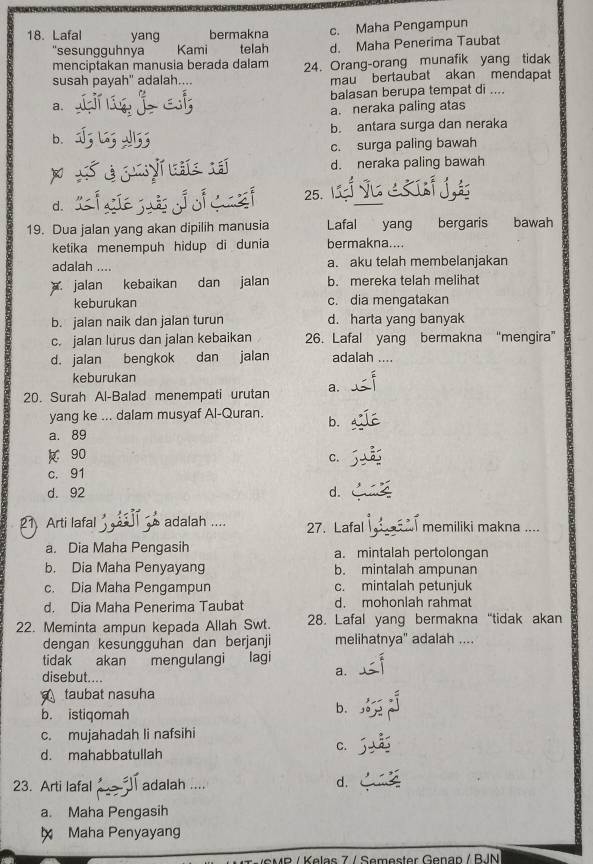 18. Lafal yang bermakna
"sesungguhnya Kami telah
menciptakan manusia berada dalam
susah payah" adalah....
a. وَأَنتَ حِلٌّۢ بِهَٰذَا ٱلْبَلَدِ
b. وَوَالِدٍ وَمَا وَلَدَ
لَقَدْ خَلَقْنَا ٱلْإِنسَٰنَ فِى كَبَدٍ
d. أَيَحْسَبُ أَن لَّن يَقْدِرَ عَلَيْهِ أَحَدٌ
19. Dua jalan yang akan dipilih manusia
ketika menempuh hidup di dunia
adalah ....
a. jalan kebaikan dan jalan
keburukan
b. jalan naik dan jalan turun
c. jalan lurus dan jalan kebaikan
d. jalan bengkok dan jalan
keburukan
20. Surah Al-Balad menempati urutan
yang ke ... dalam musyaf Al-Quran.
a. 89
b. 90
c. 91
d. 92
21. Arti lafal هُوَ ٱلْغَفُورُ adalah ....
a. Dia Maha Pengasih
b. Dia Maha Penyayang
c. Dia Maha Pengampun
d. Dia Maha Penerima Taubat
22. Meminta ampun kepada Allah Swt.
dengan kesungguhan dan berjanji
tidak akan mengulangi lagi
disebut....
a. taubat nasuha
b. istiqomah
c. mujahadah li nafsihi
d. mahabbatullah
23. Arti lafal ٱلرَّحِيمُ adalah ....
a. Maha Pengasih
b. Maha Penyayang
c. Maha Pengampun
d. Maha Penerima Taubat
24. Orang-orang munafik yang tidak
mau bertaubat akan mendapat
balasan berupa tempat di ....
a. neraka paling atas
b. antara surga dan neraka
c. surga paling bawah
d. neraka paling bawah
25. يَقُولُ أَهْلَكْتُ مَالًا لُّبَدًا
Lafal yang bergaris bawah
bermakna....
a. aku telah membelanjakan
b. mereka telah melihat
c. dia mengatakan
d. harta yang banyak
26. Lafal yang bermakna "mengira"
adalah ....
a. أَحَدٌ
b. عَلَيْهِ
c. يَقْدِرَ
d. يَحْسَبُ
27. Lafal memiliki makna ....
a. mintalah pertolongan
b. mintalah ampunan
c. mintalah petunjuk
d. mohonlah rahmat
28. Lafal yang bermakna "tidak akan
melihatnya" adalah ....
a. أَحَدٌ
b. لَمْ يَرَهُۥٓ
c. يَقْدِرَ
d. يَحْسَبُ
/ Kelas 7 / Semester Genap / BJN